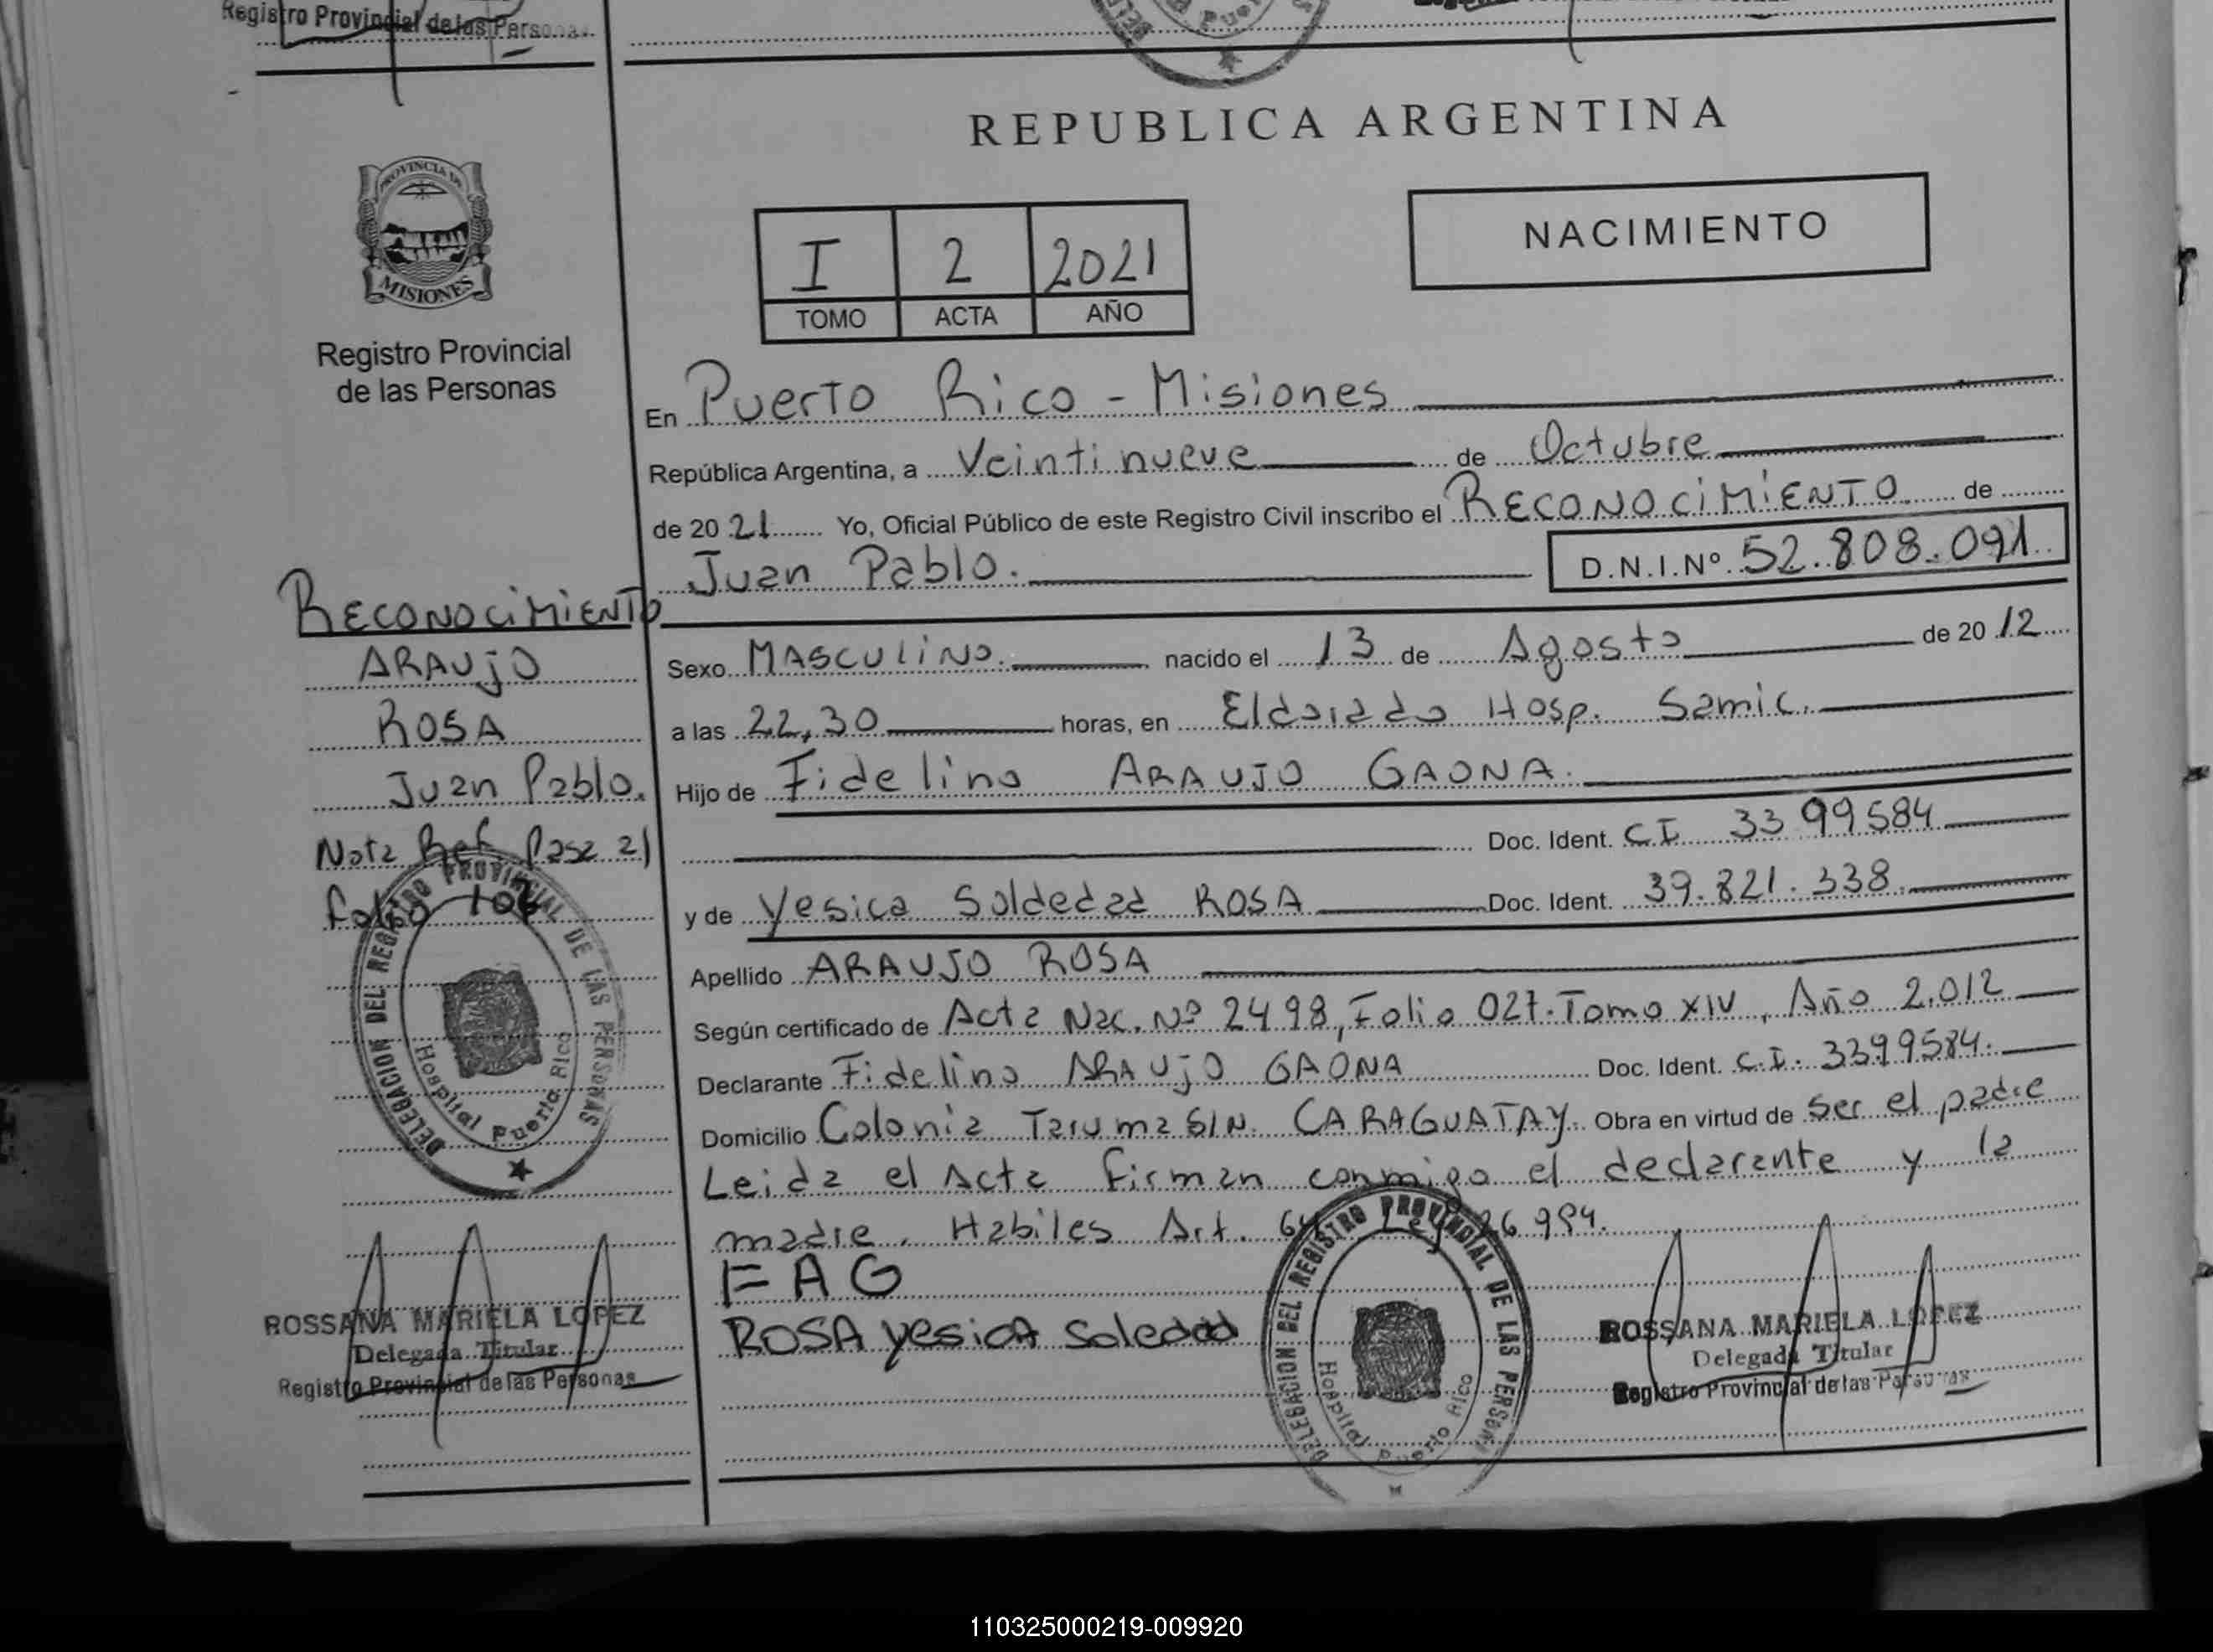 Registro Provincial de las Personas
REPUBLICA ARGENTINA
PROVINCIA DE
MISIONES
Registro Provincial
de las Personas
I 2 2021
TOMO ACTA AÑO
NACIMIENTO
En Puerto Rico - Misiones
República Argentina, a Veintinueve de Octubre
de 2021 Yo, Oficial Público de este Registro Civil inscribo el RECONOCIMIENTO de
Juan Pablo. D.N.I.Nº 52.808.091
Sexo MASCULINO. nacido el 13 de Agosto de 2012
a las 22,30 horas, en Eldorado Hosp. Samic.
Hijo de Fidelino ARAUJO GAONA.
Doc. Ident. C.I 3399584
y de Yesica Soldedad ROSA Doc. Ident. 39.821.338.
Apellido ARAUJO ROSA
Según certificado de Acta Nac. Nº 2498, Folio 027. Tomo XIV, Año 2.012
Declarante Fidelino ARAUJO GAONA Doc. Ident. C.I. 3399584.
Domicilio Colonia Taruma S/N. CARAGUATAY. Obra en virtud de ser el padre
Leida el Acta firman conmigo el declarante y la
madre. Habiles Art. Ley 26994.
FAG
ROSA yesica Soledad
RECONOCIMIENTO
ARAUJO
ROSA
Juan Pablo.
Nota Ref. Pasa al
folio
DELEGACION DEL REGISTRO PROVINCIAL DE LAS PERSONAS
Hospital Puerto Rico
ROSSANA MARIELA LOPEZ
Delegada Titular
Registro Provincial de las Personas
DELEGACION DEL REGISTRO PROVINCIAL DE LAS PERSONAS
Hospital Puerto Rico
ROSSANA MARIELA LOPEZ
Delegada Titular
Registro Provincial de las Personas
110325000219-009920